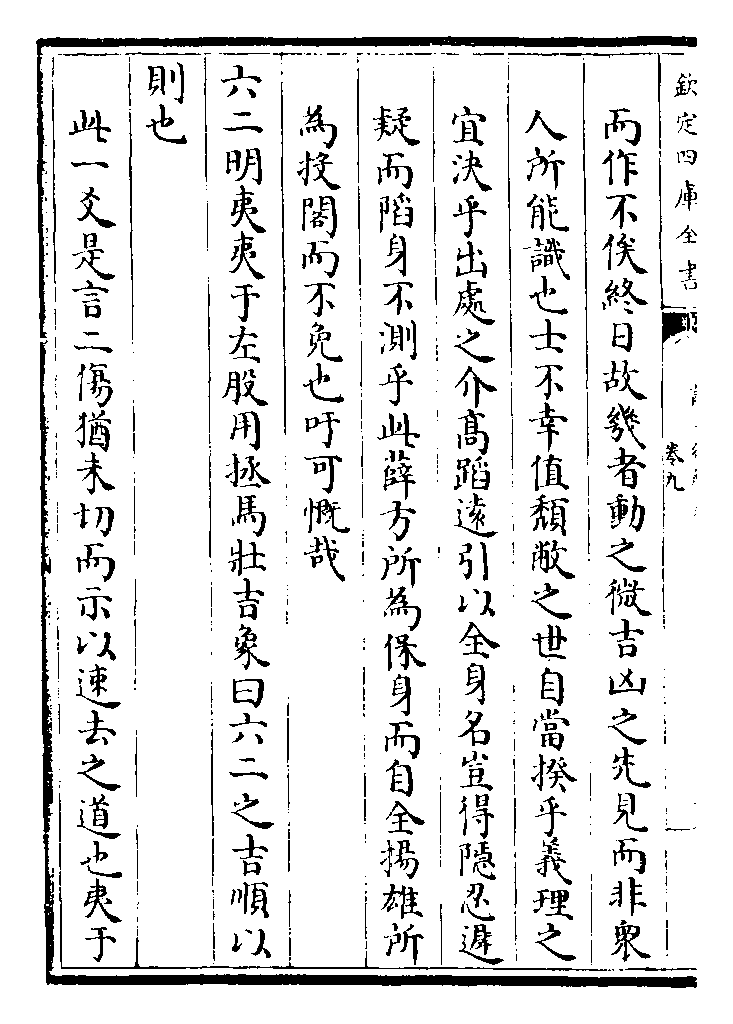 欽定四庫全書
卷九
而作不俟終日故幾者動之微吉凶之先見而非衆
人所能識也士不幸值頽敝之世自當揆乎義理之
宜決乎出處之介高蹈遠引以全身名豈得隱忍遲
疑而陷身不測乎此薛方所為保身而自全揚雄所
為投閣而不免也吁可慨哉
六二明夷夷于左股用拯馬壯吉象曰六二之吉順以
則也
此一爻是言二傷猶未切而示以速去之道也夷于